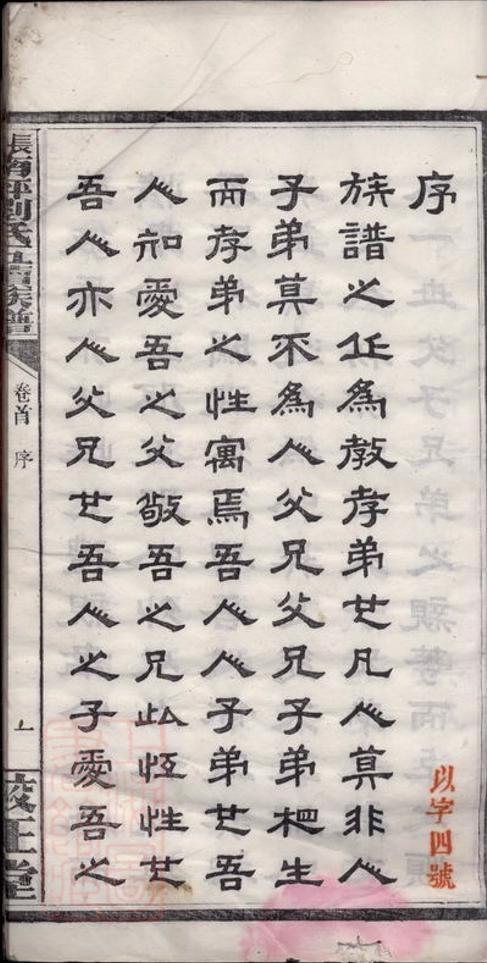 序
族譜之作為教孝弟也凡人莫非人
子弟莫不為人父兄父兄子弟相生
而孝弟之性寓焉吾人人子弟也吾
人知愛吾之父敬吾之兄此恆性也
吾人亦人父兄也吾人之子愛吾之
以字四號
劉氏五修族譜
卷首 序